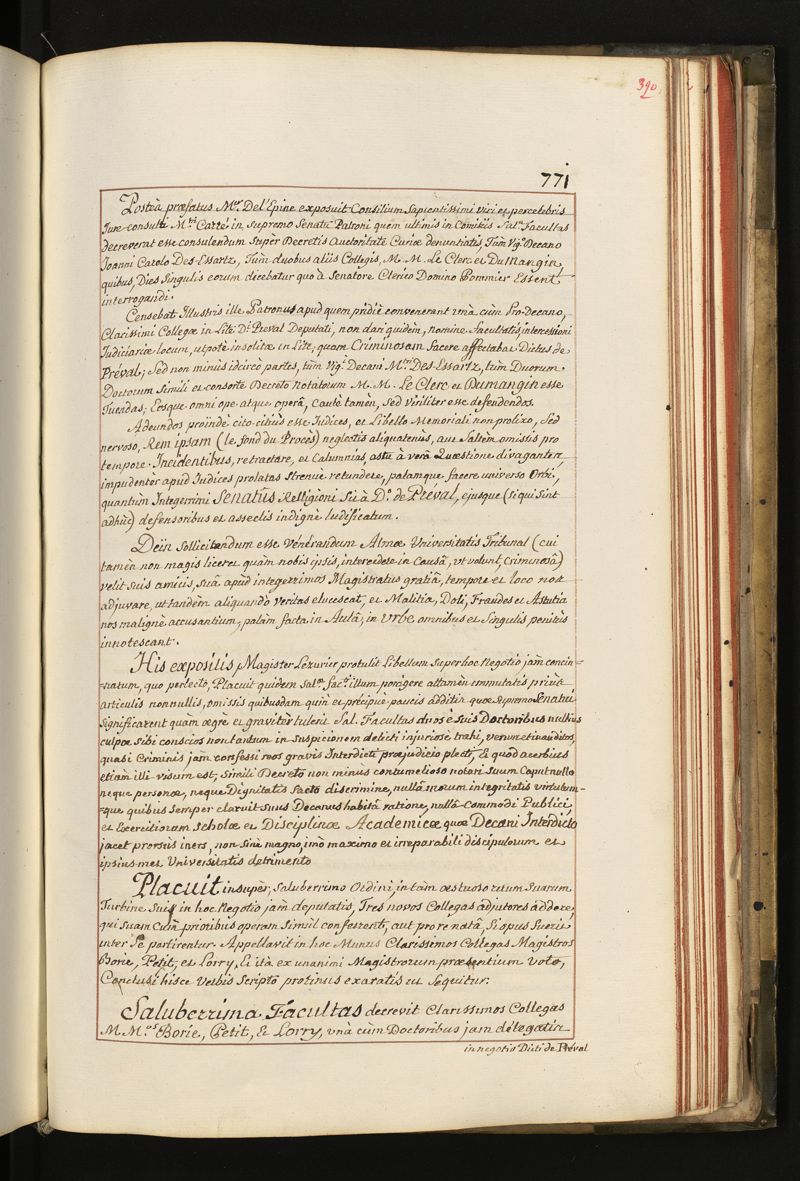 390.
771
Posteà præfatus M.er Del'Epine exposuit Consilium Sapientissimi viri et percelebris
Jure consulti M.tri Carré in supremo Senatu Patroni quem ultimis in Comitiis Sal.a Facultas
decreverat esse consulendum super Decretis auctoritate Curiæ denuntiatis, Tùm Vig.o Decano
Joanni Carolo Des-Essartz, Tùm duobus aliis Collegis, M. M. Le Clerc et Dumangin,
quibus, Dies Singulis eorum dicebatur quo à Senatore Clerico Domino Pommier Essent
interrogandi.
Censebat Illustris ille Patronus apud quem pridiè convenerant unà cùm Pro-Decano,
Clarissimi Collegæ in Lite D.i Preval Deputati, non dari quidem, nomine Facultatis, intercessioni
Judiciariæ locum, utpote insolitæ in Lite, quam Criminosam facere affectabat Dictus de
Préval; Sed non minùs idcircò partes, tùm Vig.i Decani M.tri Des-Essartz, tùm Duorum
Doctorum simili et consorte Decreto notatorum M. M. Le Clerc et Dumangin esse
Tuendas; Eosque omni ope atque operâ, Cautè tamèn, Sed Viriliter esse defendendos.
Adeundos proindè citò citiùs esse Judices, et Libello Memoriali non prolixo, Sed
nervoso, Rem ipsam (le fond du Procès) neglectis aliquatenus, aut Saltem omissis pro
tempore Incidentibus, retractare, et Calumnias, astu à verâ Quæstione divagante,
impudentèr apud Judices prolatas strenuè retundere, palàmque facere universo Orbi,
quantùm Integerrimi Senatûs Religioni sit à D.o de Préval, ejusque (si qui sint
adhùc) defensoribus et asseclis indignè ludificatum.
Deìn Sollicitandum esse Venerandum Almæ Universitatis Tribunal (cui
tamèn non magis liceret quàm nobis ipsis, intercedere in Causâ, ut volunt, Criminosâ)
velit suis amicis, suâ apud integerrimos Magistratus gratiâ, tempore et loco nos
adjuvare, ut tandèm aliquandò veritas elucescat, et Malitia, Doli, Fraudes et Astutia
nos malignè accusantium, palàm facta in Aulâ, in Urbe omnibus et Singulis penitùs
innotescant.
His expositis, Magister Lezurier protulit Libellum Super hoc Negotio jàm concin=
=natum, quo perlecto, Placuit quidem Sal.æ Fac.ti illum porrigere attamèn immutatis priùs
articulis nonnullis, omissis quibusdam quin et præcipuè paucis additis quæ Supremo Senatui
Significarent quàm ægre et gravitèr tulerit Sal. Facultas duos è suis Doctoribus nullius
culpæ sibi conscios non tantum in suspicionem delicti injuriosè trahi, verum et inauditos,
quasi Criminis jam confessi reos gravis Interdicti præjudicio plecti, Et quod acerbius
etiam illi visum est, simili Decreto non minùs contumelioso notari suum Caput nullo
neque personæ, neque Dignitatis facto discrimine, nullâ morum integritatis virtutum-
=que quibus semper claruit suus Decanus habitâ ratione, nullâ Commodi Publici,
et Exercitiorum Scholæ et Disciplinæ Academicæ quæ Decani Interdicto
jacet prorsùs iners, non sine magno, imò maximo et irreparabili discipulorum et
ipsiusmet Universitatis detrimento
Placuit insupèr, Saluberrimo Ordini, in tàm æstuoso rerum Suarum
Turbine Suis in hoc Negotio jàm deputatis, Tres novos Collegas adjutores addere,
qui suam cùm prioribus operam simùl conferrent, aut pro re natâ, si opus fuerit
inter se partirentur. Appellavit in hoc Munus Clarissimos Collegas Magistros
Borie, Petit, et Lorry, Et ità ex unanimi Magistrorum præsentium Voto,
Conclusi hisce Verbis Scripto protinus exaratis ut Sequitur.
Saluberrima Facultas decrevit Clarissimos Collegas
M.M.os Borie, Petit, Et Lorry, unà cùm Doctoribus jam delegatis
in negotis Dicti de Préval